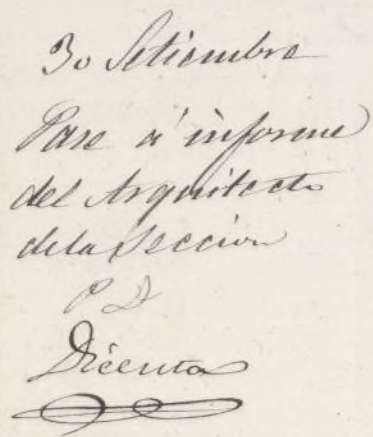 30 Setiembre
Pase á informe
del Arquitecto
de la Seccion
P D
Dicenta